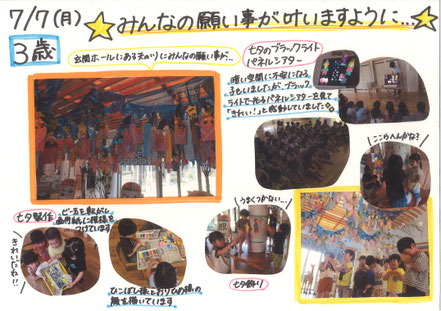 7/7(月)
みんなの願い事が叶いますように…
3歳
玄関ホールにある天の川にみんなの願い事が…
七夕のブラックライト
パネルシアター
暗い空間に不安になる
子もいましたが、ブラック
ライトで光るパネルシアターを見て
「きれい!」と感動していました
ここらへんかな?
七夕製作
ビー玉を転がし
画用紙に模様を
つけています
きれいだね!!
うまくつかない…
ひこぼし様とおりひめ様の
顔を描いています
七夕飾り